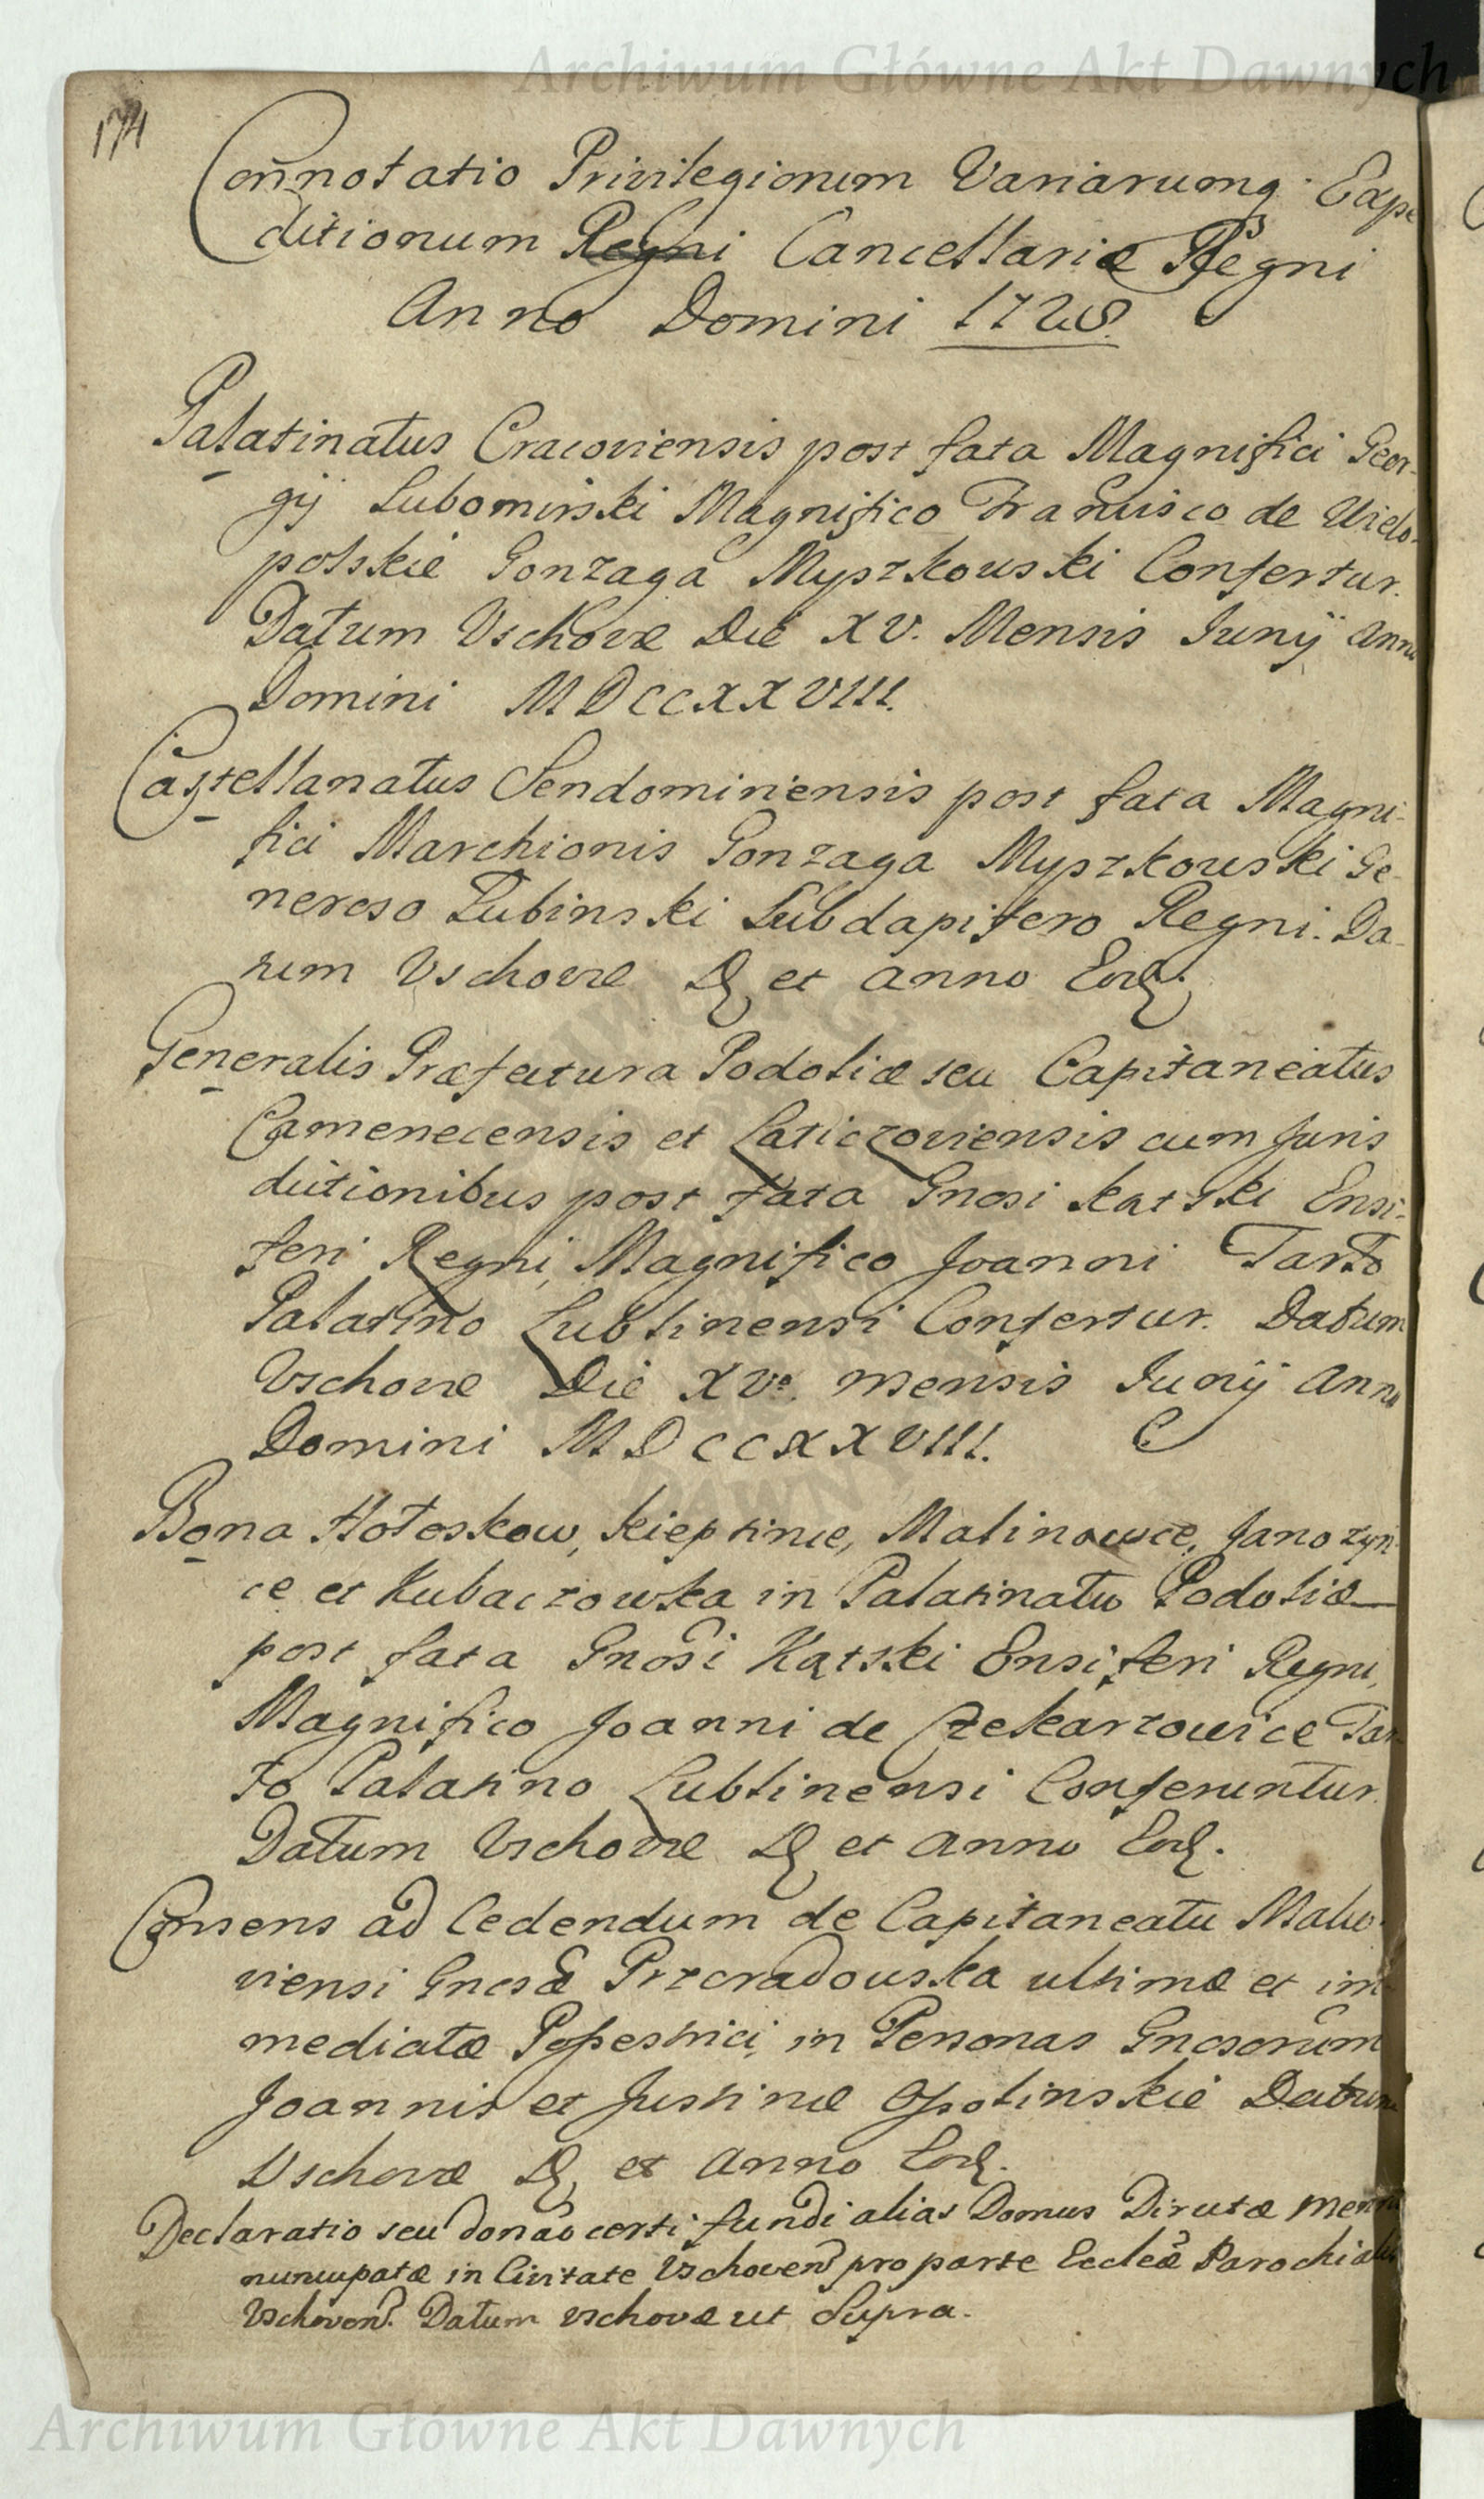 Archiwum Główne Akt Dawnych
174
Connotatio Privilegiorum Variarumq. Expe
ditionum Regni Cancellariæ Regni
Anno Domini 1728.
Palatinatus Cracoviensis post fata Magnifici Geor-
gij Lubomirski Magnifico Francisco de Wielo-
polskie Gonzaga Myszkowski Confertur.
Datum Vschovæ Die XV. Mensis Junij Anno
Domini MDCCXXVIII.
Castellanatus Sendomiriensis post fata Magni-
fici Marchionis Gonzaga Myszkowski Ge-
neroso Łubinski Subdapifero Regni. Da-
tum Vschovæ D. et anno Eod.
Generalis Præfectura Podoliæ seu Capitaneatus
Camenecensis et Laticzoviensis cum Juris
dictionibus post fata Gnosi Kątski Ensi-
feri Regni, Magnifico Joanni Tarło
Palatino Lublinensi Confertur. Datum
Vschovæ Die XVa. mensis Junij Anno
Domini MDCCXXVIII. C
Bona Hołoskow, Kieptince, Malinowce, Janozyn-
ce et Kubaczowka in Palatinatu Podoliæ
post fata Gnosi Kątski Ensiferi Regni,
Magnifico Joanni de Czekarzowice Tar
ło Palatino Lublinensi Conferuntur.
Datum Vschovæ D. et Anno Eod.
Consens ad Cedendum de Capitaneatu Mako-
viensi Gnosæ Przeradowska ultimæ et im
mediatæ Possestrici, in Personas Gnosorum
Joannis et Justinæ Ossolinskie Datum
Vschovæ D. et Anno Eod.
Declaratio seu donão certi fundi alias Domus Dirutæ
nuncupatæ in Civitate Vschoven pro parte Eccleæ Parochialis
Vschoven. Datum Vschovæ ut Supra.
Archiwum Główne Akt Dawnych